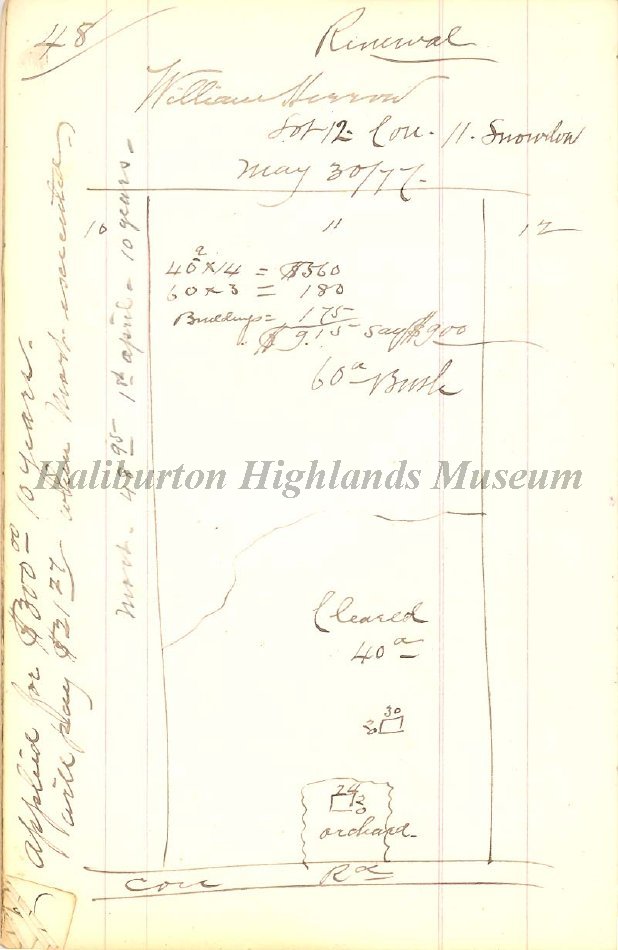 48
Renewal
William Herron
Lot 12 Con. 11. Snowdon
May 30/77.
10 11 12
40a x 14 = $560
60 x 3 = 180
Buildings = 175
$9.15 say $900
60a Bush
Haliburton Highlands Museum
Cleared
40a
30
20
24
20
orchard
Con Rd
applied for $300.00 10 years.
will pay $21 27 when Mort. executed.
Mort. 48 95 1st april - 10 years -